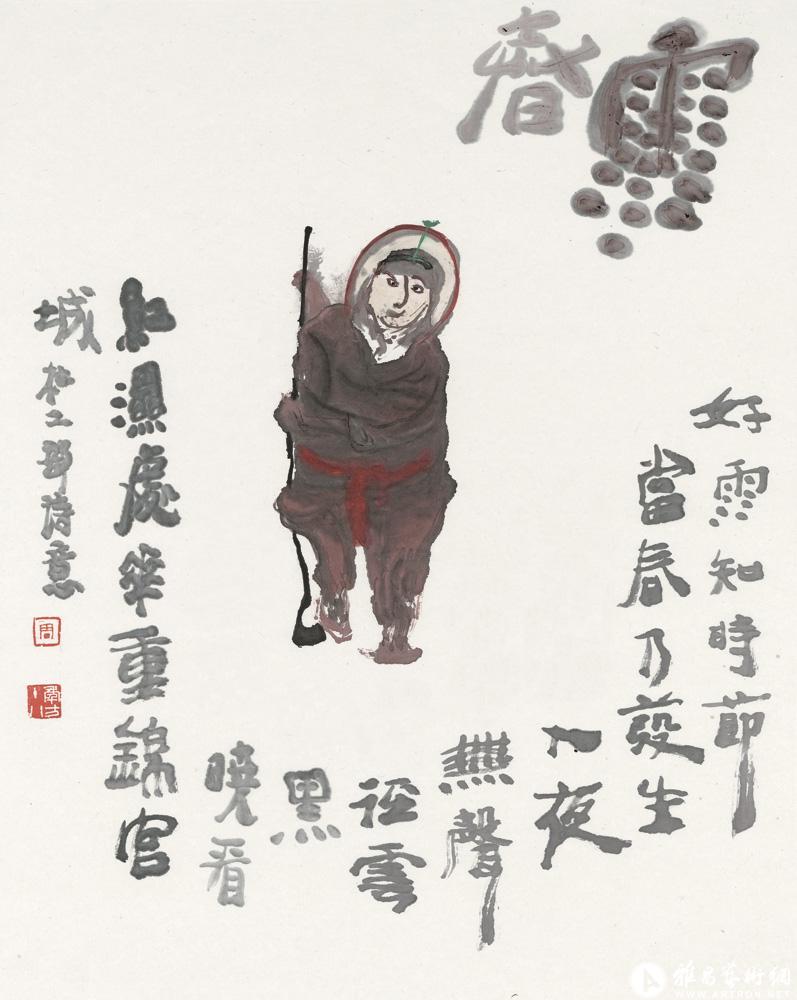 雨春
好雨知時節
當春乃發生
入夜
無聲
径雲
黑
曉看
紅濕處華重錦官
城 杜工部詩意
周
雅昌藝術網
WWW.ARTRON.NET